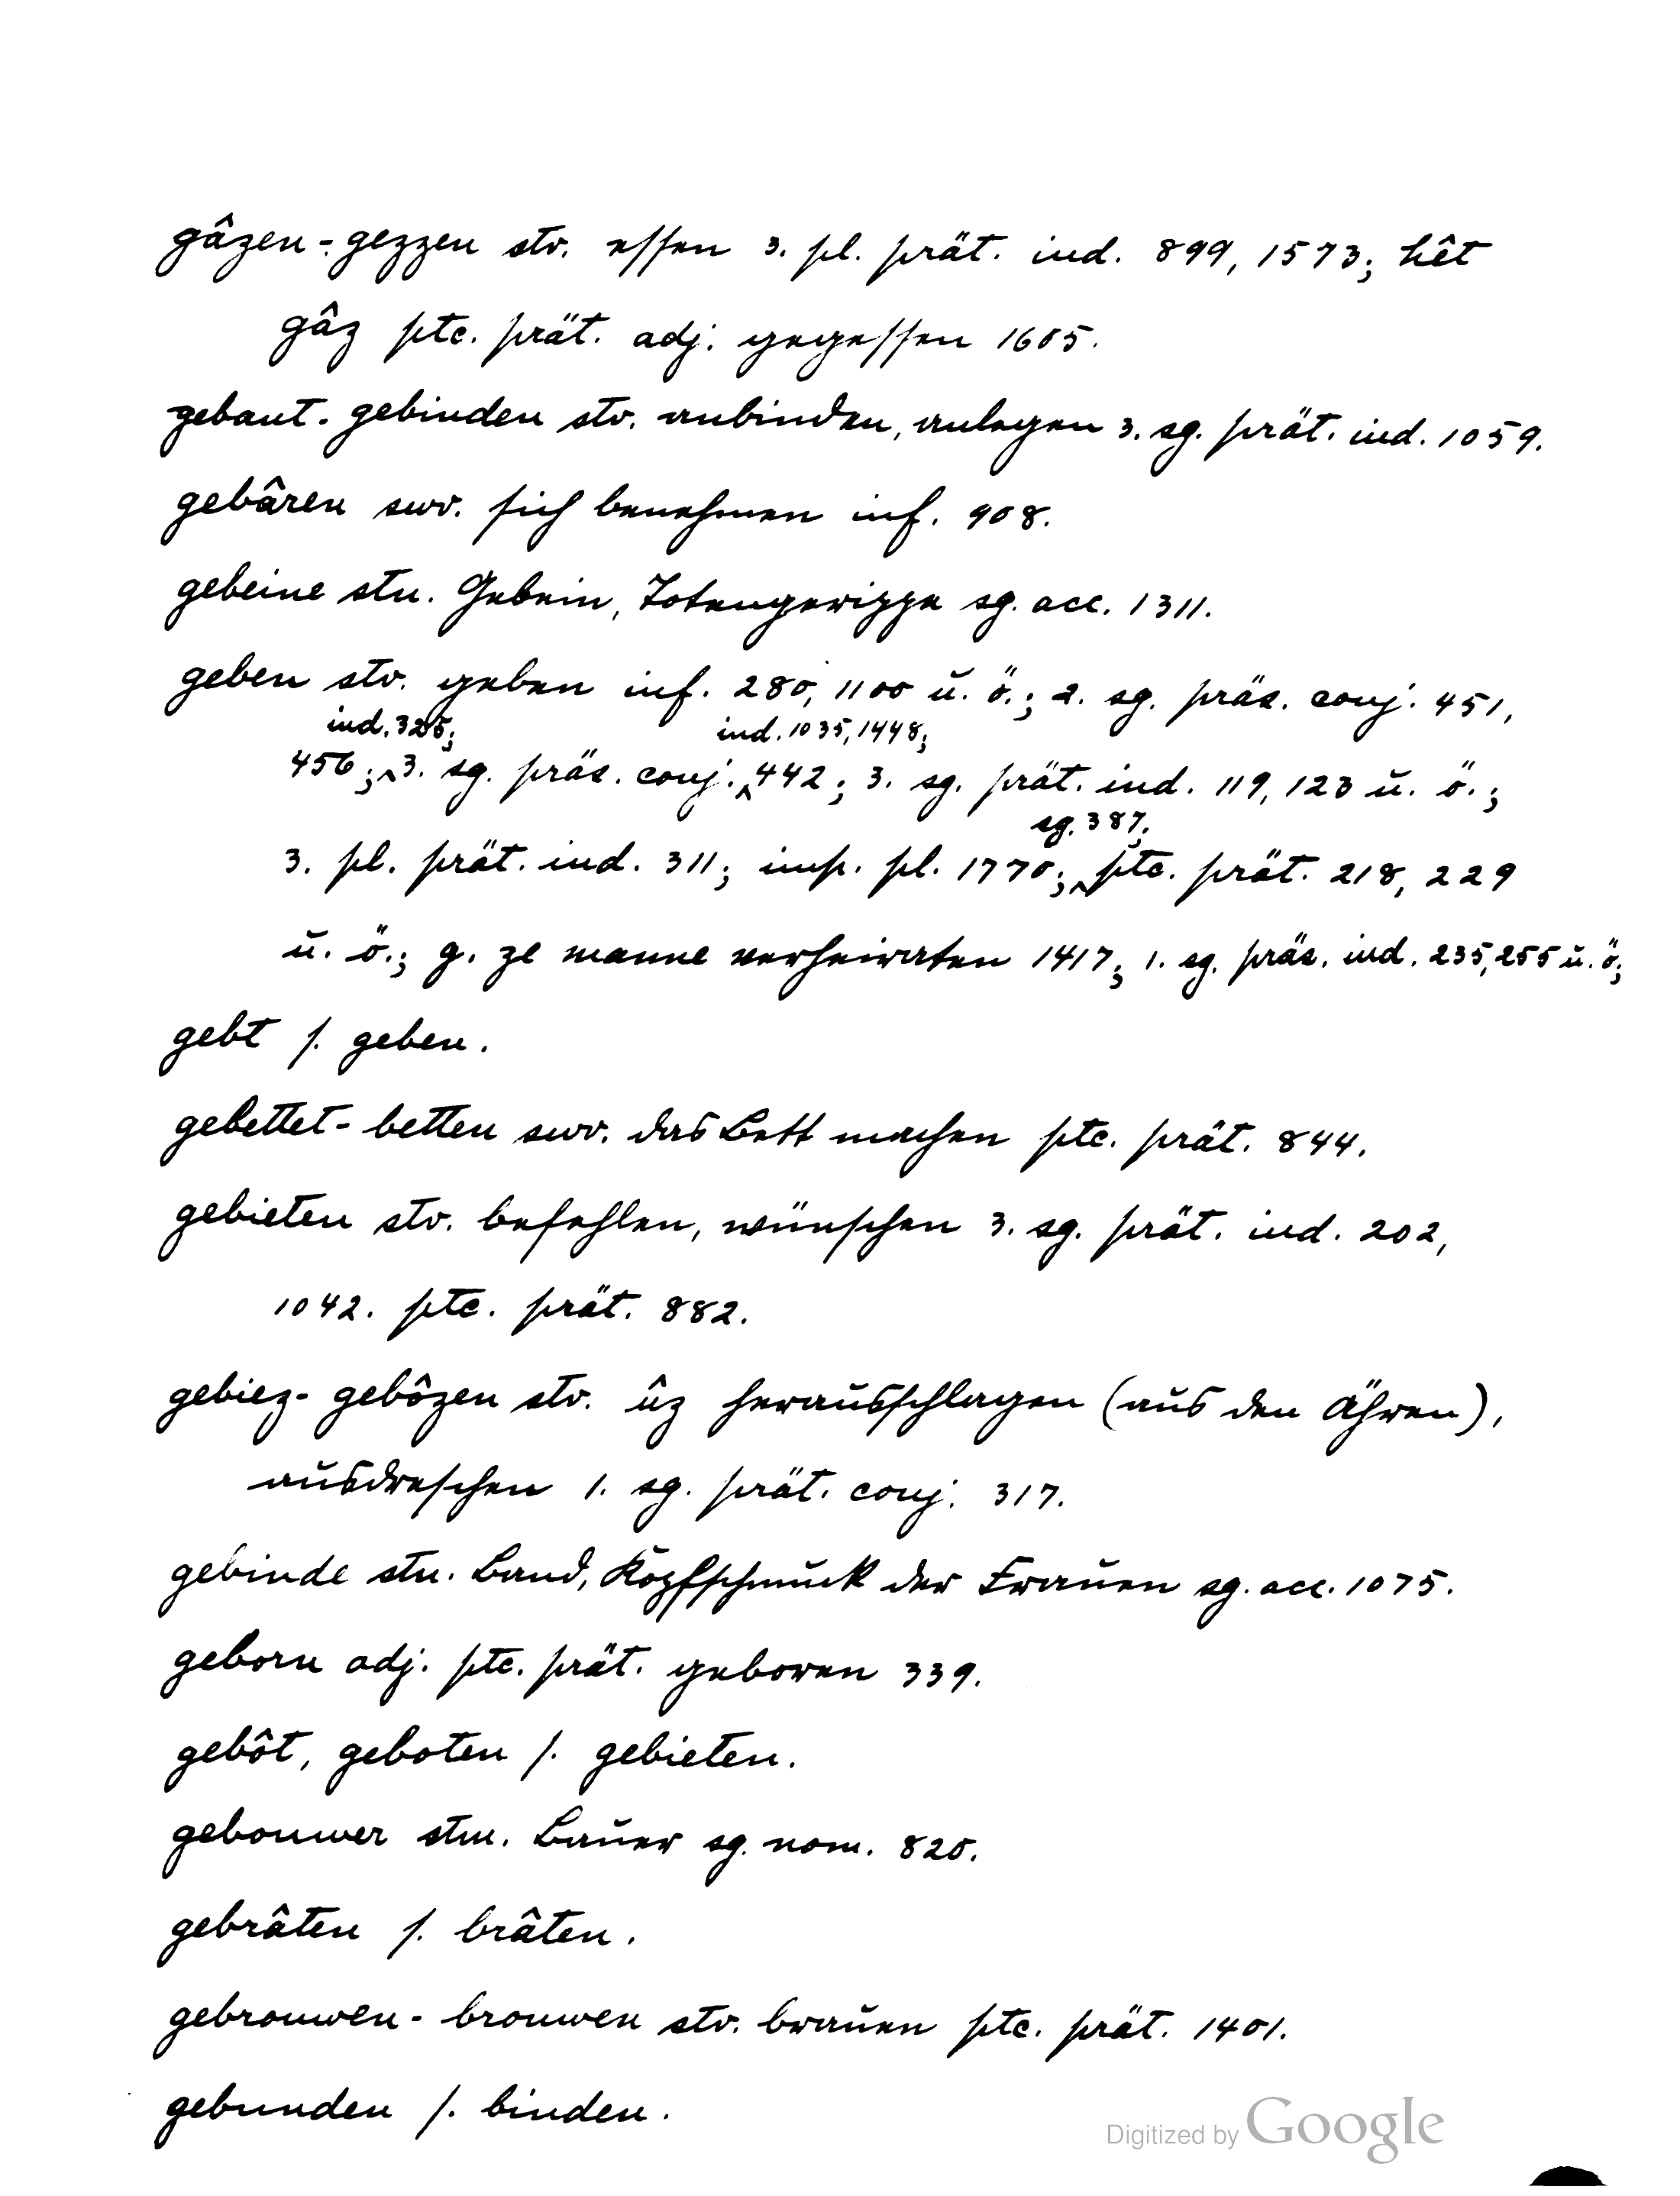 gâzen - gezzen stv. essen 3. pl. prät. ind. 899, 1573; hêt
gâz ptc. prät. adj. gegessen 1605.
gebant - gebinden stv. anbinden, anlegen 3. sg. prät. ind. 1059.
gebâren swv. sich benehmen inf. 908.
gebeine stn. Gebein, Totengerippe sg. acc. 1311.
geben stv. geben inf. 280, 1100 u. ö.; 2. sg. präs. conj. 451,
ind. 325; ind. 1035, 1448;
456; 3. sg. präs. conj. 442; 3. sg. prät. ind. 119, 123 u. ö.;
sg. 387;
3. pl. prät. ind. 311; imp. pl. 1770; ptc. prät. 218, 229
u. ö.; g. ze manne verheiraten 1417; 1. sg. präs. ind. 235, 255 u. ö;
gebt s. geben.
gebettet - betten swv. das Bett machen ptc. prät. 844.
gebieten stv. befehlen, wünschen 3. sg. prät. ind. 202,
1042. ptc. prät. 882.
gebiez - gebôzen stv. ûz herausschlagen (aus den Ähren),
ausdreschen 1. sg. prät. conj. 317.
gebinde stn. Band, Kopfschmuck der Frauen sg. acc. 1075.
geborn adj. ptc. prät. geboren 339.
gebôt, geboten s. gebieten.
gebouwer stm. Bauer sg. nom. 820.
gebrâten s. brâten.
gebrouwen - brouwen stv. brauen ptc. prät. 1401.
gebunden s. binden.
Digitized by Google